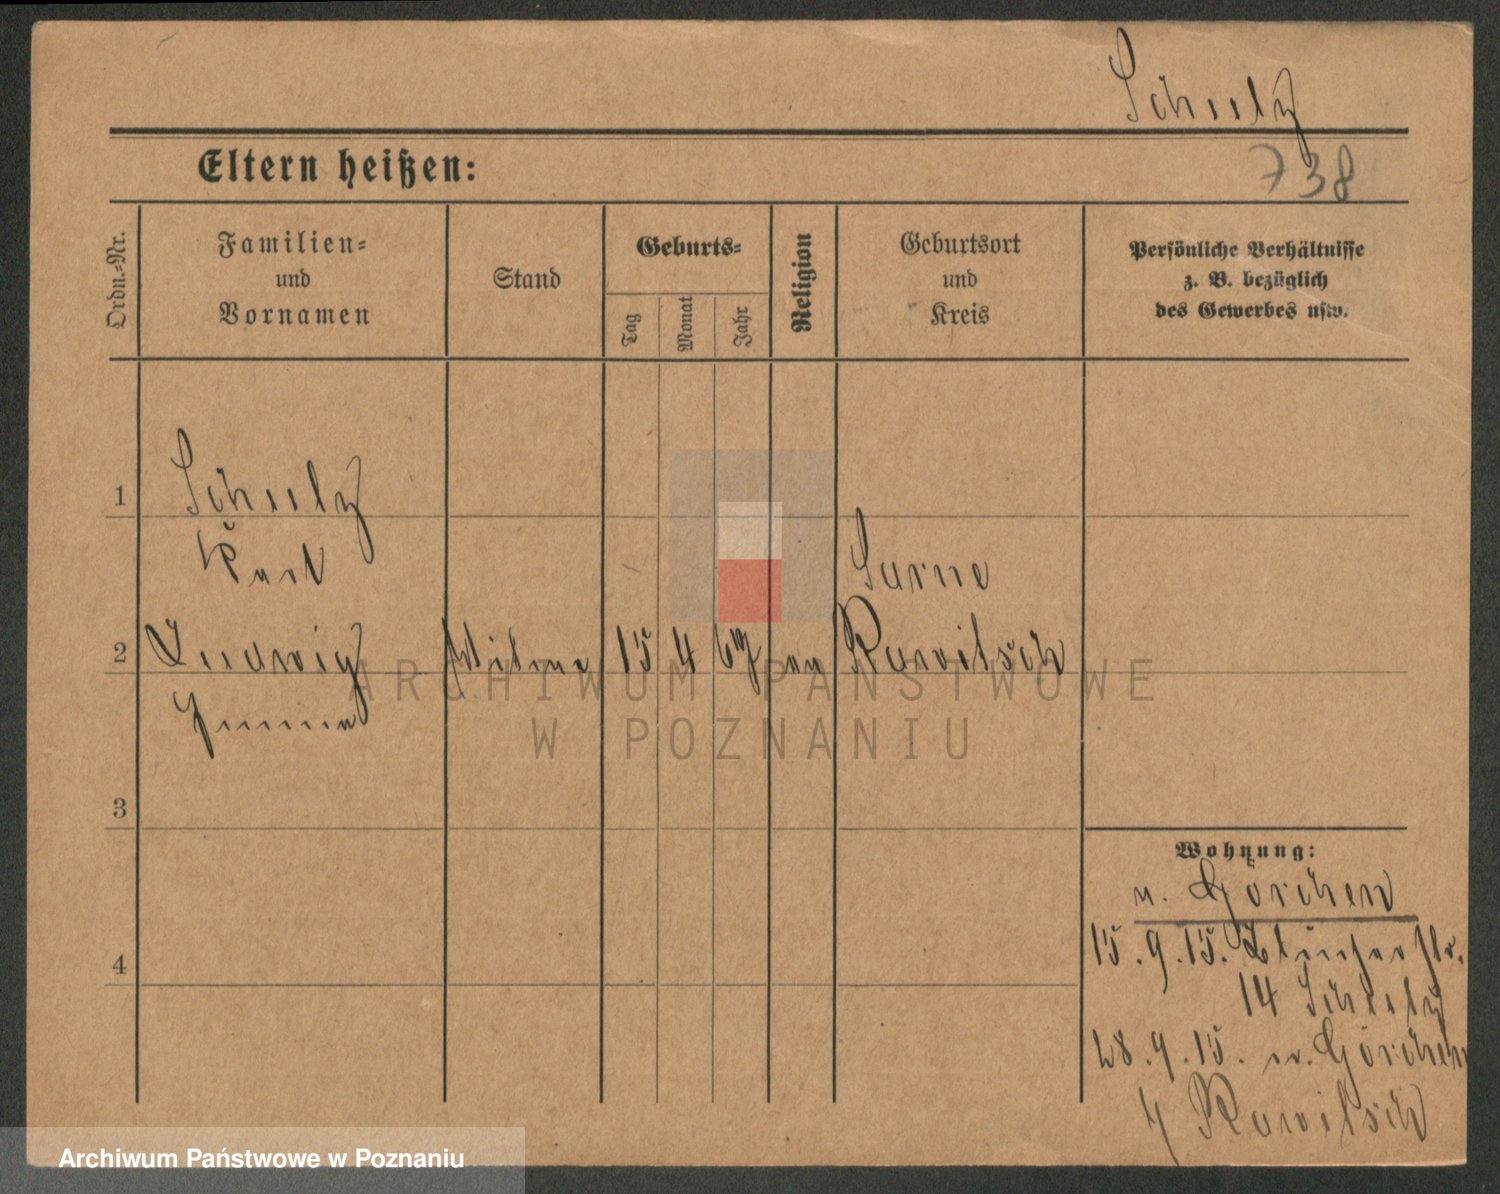 Schulz
738
Eltern heißen:
Ordn.-Nr.
Familien-
und
Vornamen
Stand
Geburts-
Tag
Monat
Jahr
Religion
Geburtsort
und
Kreis
Persönliche Verhältnisse
z. B. bezüglich
des Gewerbes usw.
1
Schulz
2
Ludwig Witwe 15 4 67 ev Rawitsch
Sarne
Emma
3
4
Wohnung:
n. Görchen
15.9.15.
14 Schulz
28.9.15. n. Görchen
Rawitsch
ARCHIWUM PAŃSTWOWE
W POZNANIU
Archiwum Państwowe w Poznaniu